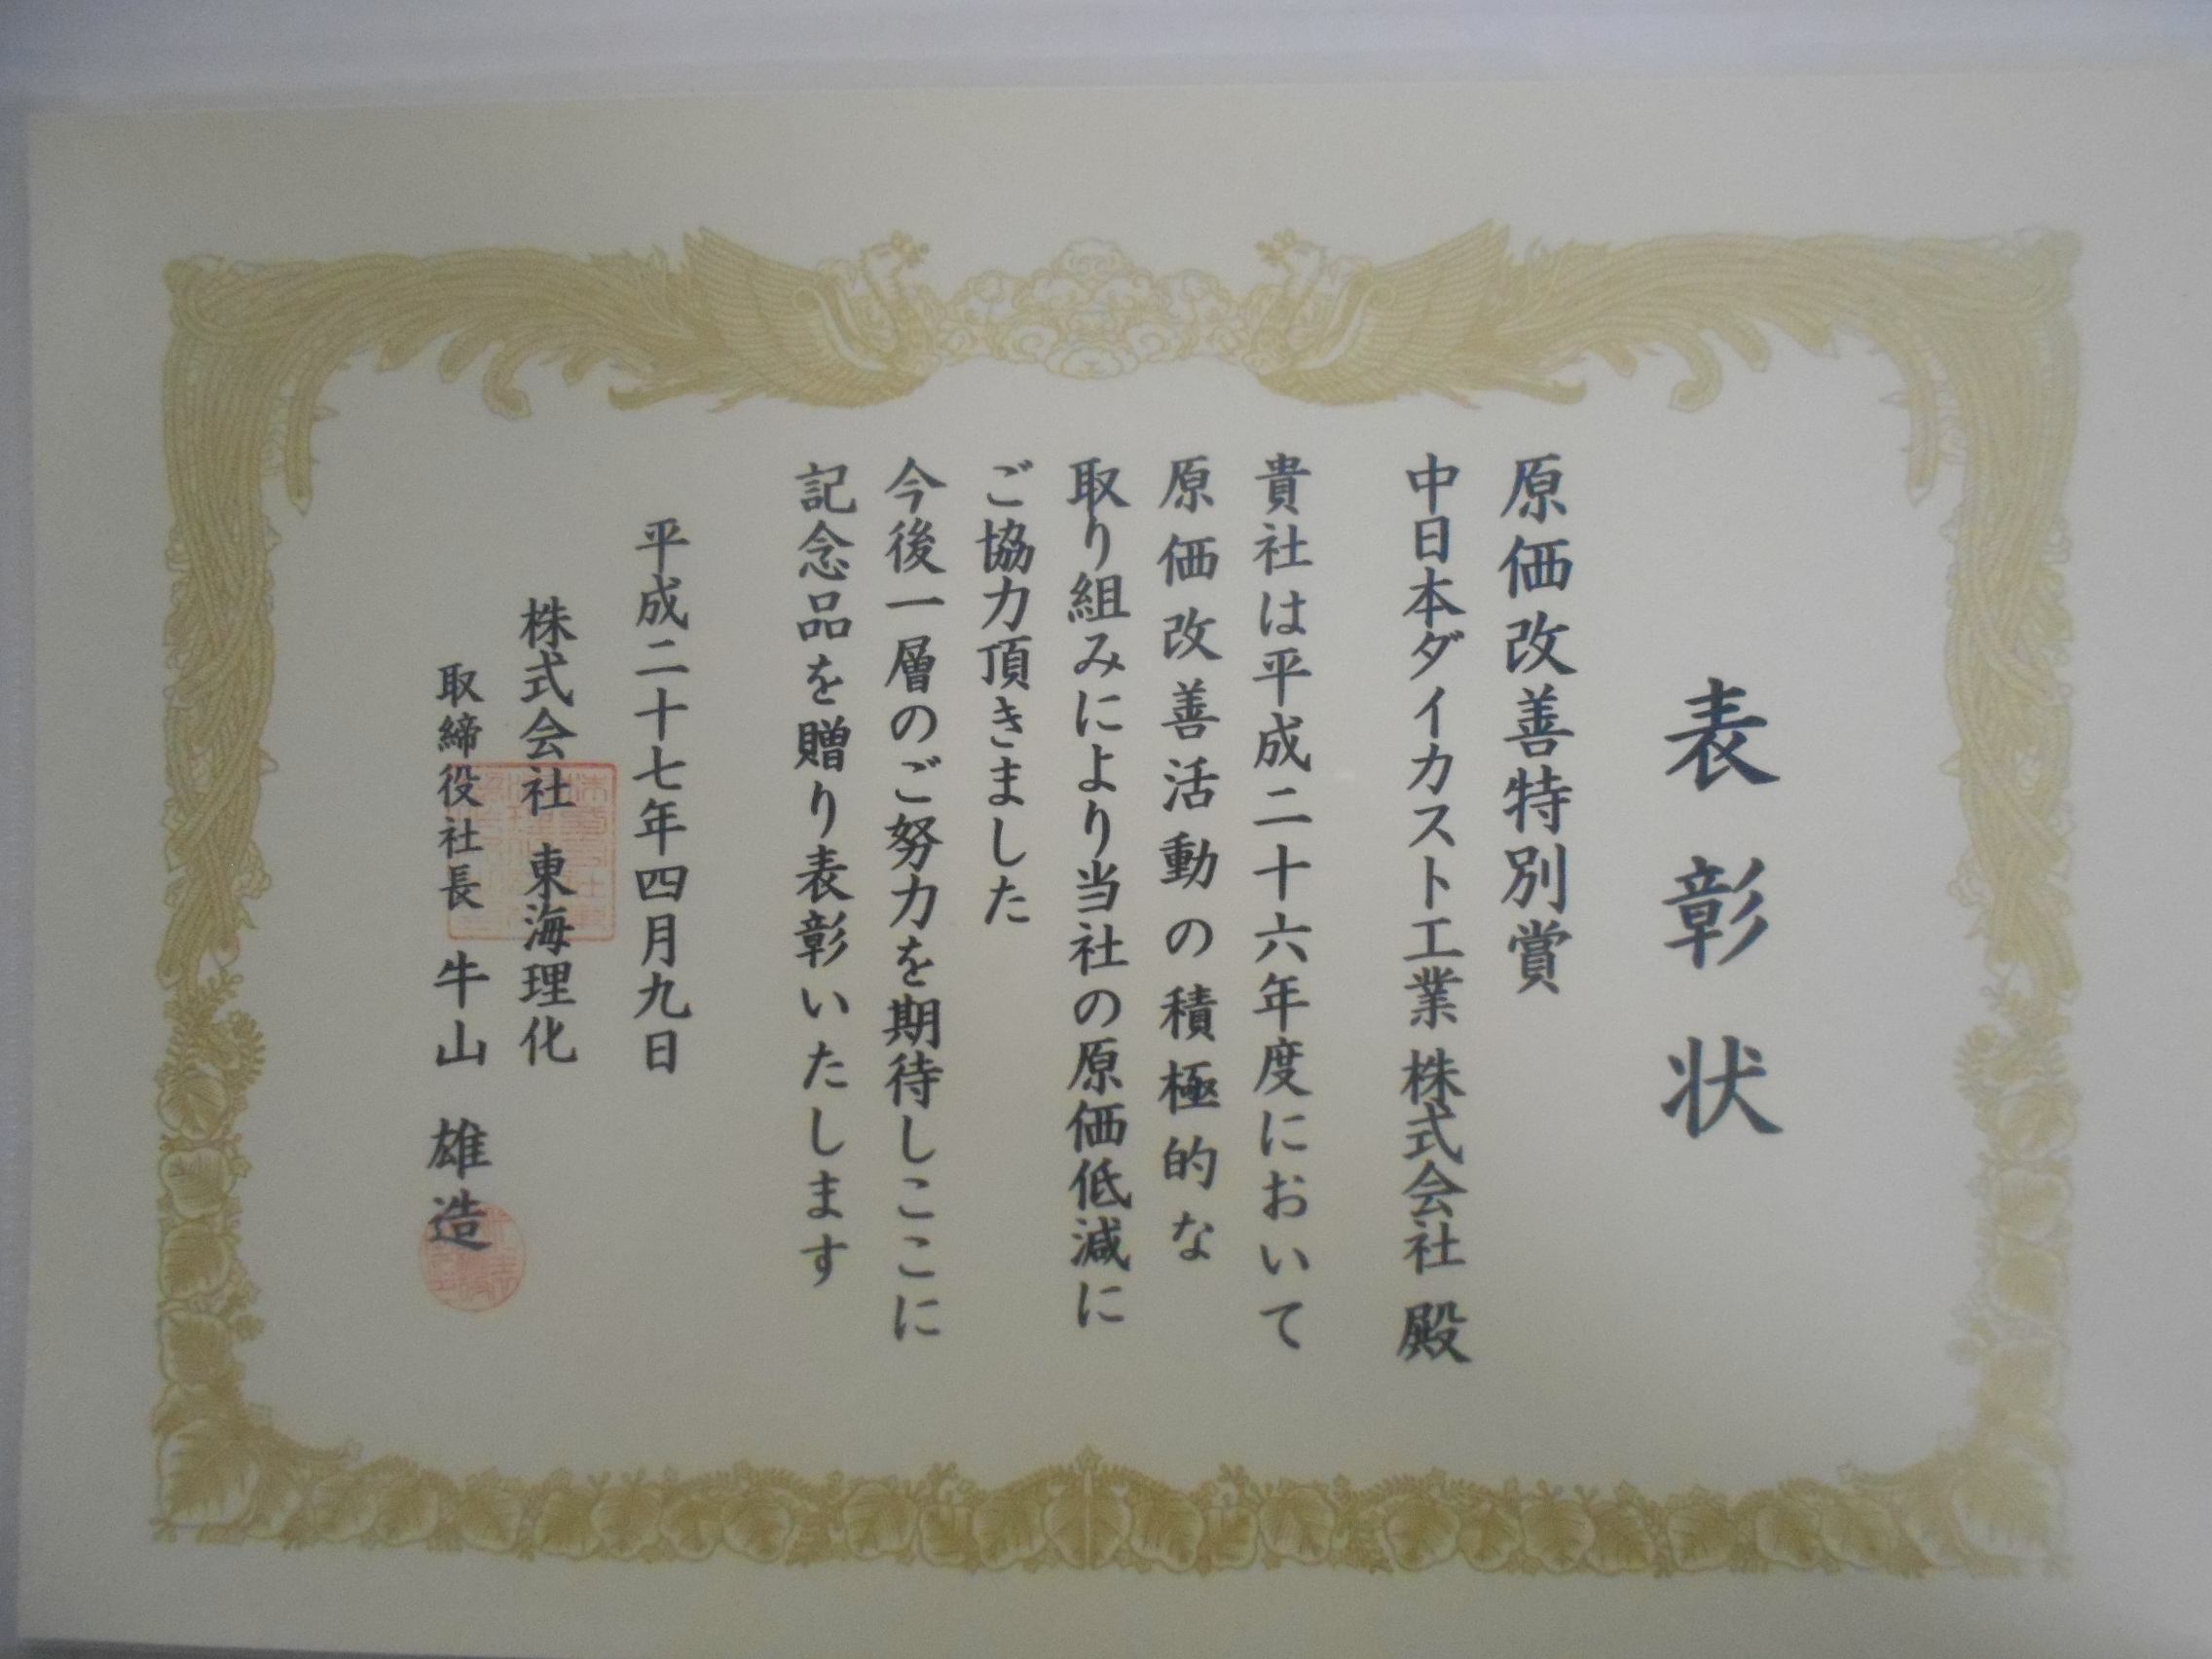 表彰状
原価改善特別賞
中日本ダイカスト工業 株式会社 殿
貴社は平成二十六年度において
原価改善活動の積極的な
取り組みにより当社の原価低減に
ご協力頂きました
今後一層のご努力を期待しここに
記念品を贈り表彰いたします
平成二十七年四月九日
株式会社 東海理化
取締役社長 牛山 雄造